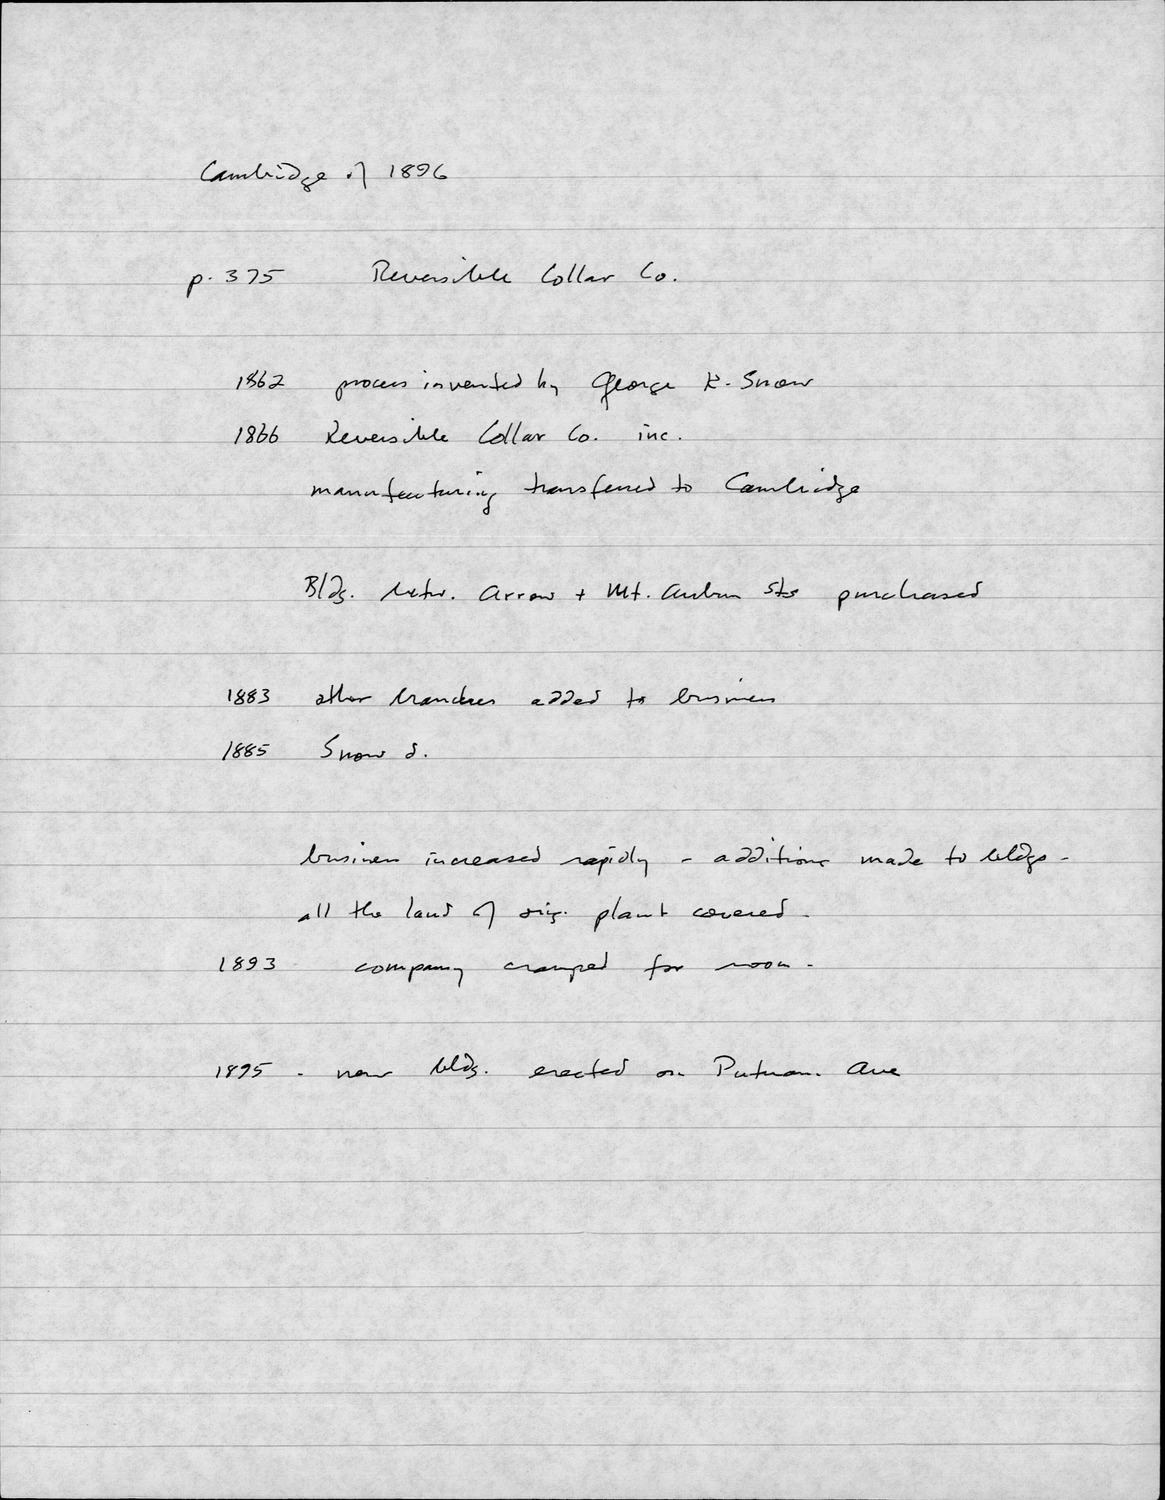 Cambridge of 1896
p. 375 Reversible Collar Co.
1862 process invented by George K. Snow
1866 Reversible Collar Co. inc.
manufacturing transferred to Cambridge
Bldg. betw. Arrow + Mt. Auburn Sts purchased
1883 other branches added to business
1885 Snow d.
business increased rapidly - additions made to bldgs -
all the land of orig. plant covered -
1893 company cramped for room -
1895 - new bldg. erected on Putnam Ave